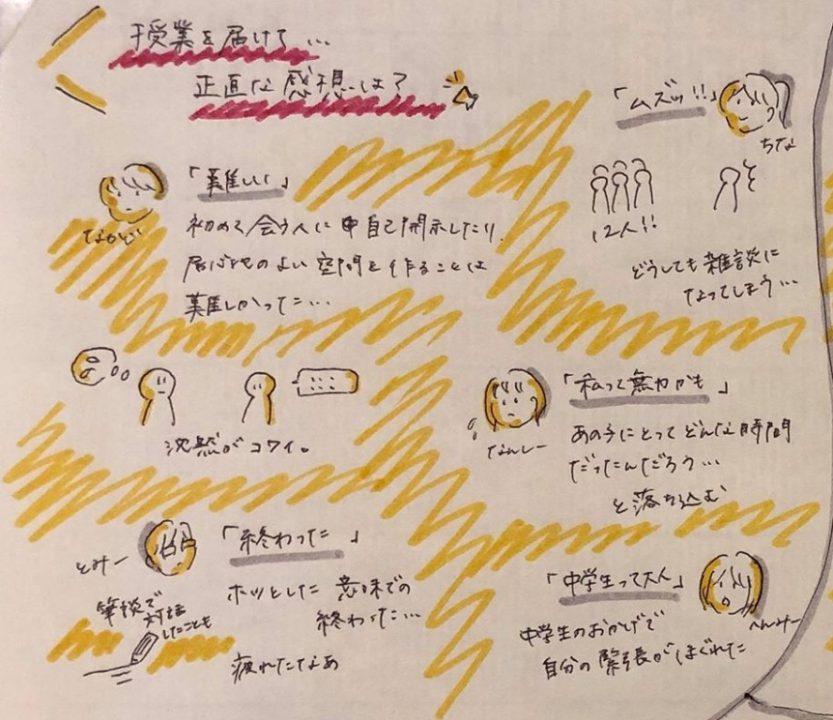 授業を届けて…
正直な感想は？
「難しい」
なかじ
初めて会う人に自己開示したり、
居心地のよい空間を作ることは
難しかった…
沈黙がコワイ。
「ムズッ!!」
ちな
12人!!
どうしても雑談に
なってしまう…
「私って無力かも」
なんしー
あの子にとってどんな時間
だったんだろう…
と落ち込む
「終わった」
とみー
ホッとした意味での
終わった…
筆談で
対話
したことも
疲れたなあ
「中学生って大人」
へんみー
中学生のおかげで
自分の緊張がほぐれた